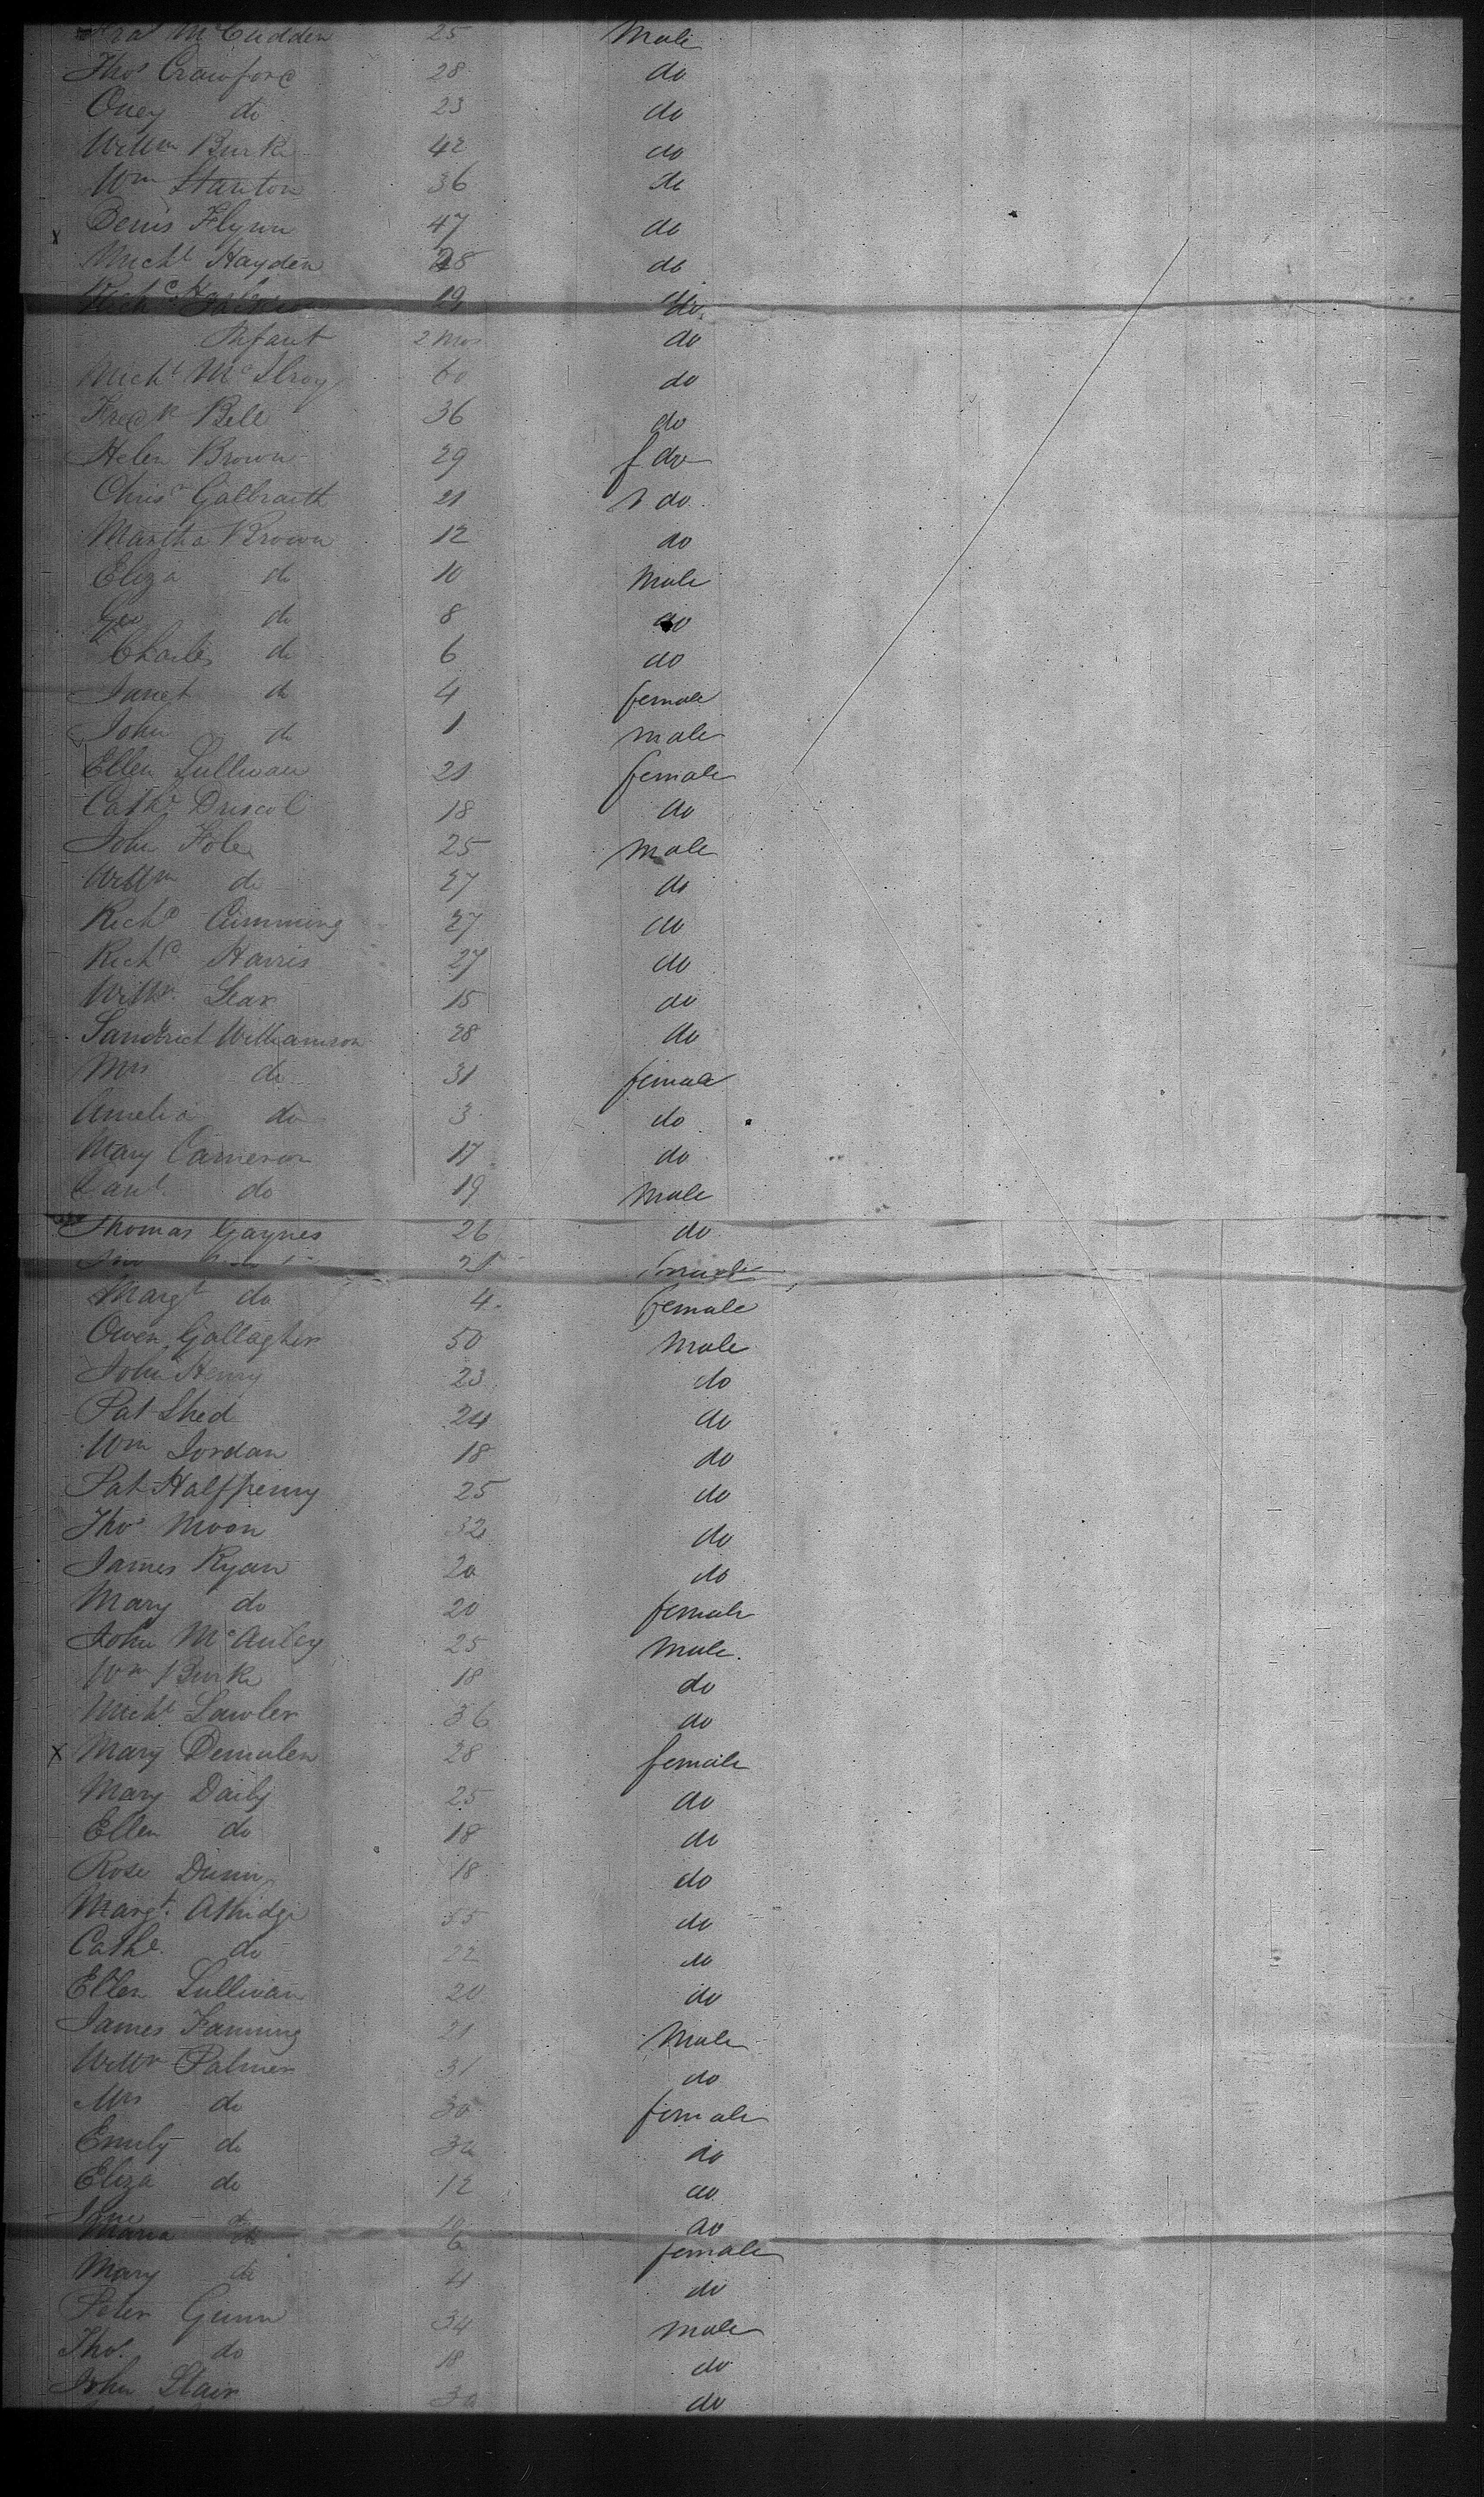 McCudden 25 Male
Thos Crawford 28 do
Oney do 23 do
Willm Burke 42 do
Wm Stanton 36 do
x Denis Flynn 47 do
Michl Hayden 28 do
19 do
Infant 2 mos do
Michl McIlroy 60 do
Fredk Bell 36 do
Helen Brown 29 f do
Chrisn Galbraith 21 do
Martha Brown 12 do
Eliza do 10 Male
Geo do 8 do
Charles do 6 do
Janet do 4 female
John do 1 male
Ellen Sullivan 21 female
Cathe Driscol 18 do
John Foley 25 male
Willm do 27 do
Richd Cumming 27 do
Richd Harris 27 do
Willm Lear 15 do
Williamson 28 do
Mrs do 31 female
Amelia do 3 do
Mary Cameron 17 do
do 19 Male
Thomas Gaynes 26 do
Margt do 4 female
Owen Gallagher 50 Male
John Henry 23 do
Pat Shed 24 do
Wm Jordan 18 do
Pat Halfpenny 25 do
Thos Moon 32 do
James Ryan 20 do
Mary do 20 female
John McAuley 25 Male
Wm Burke 18 do
Michl Lawler 36 do
x Mary Demulen 28 female
Mary Daily 25 do
Ellen do 18 do
Rose Dunn 18 do
Margt. Athidge 55 do
Cathe. do 22 do
Ellen Sullivan 20 do
James Fanning 21 Male
Willm Palmer 31 do
Mrs do 30 female
Emily do do
Eliza do 12 do
Jane do 10 do
Maria do 6 female
Mary do 4 do
Peter Gunn 34 male
Thos. do 18 do
John Stair 30 do